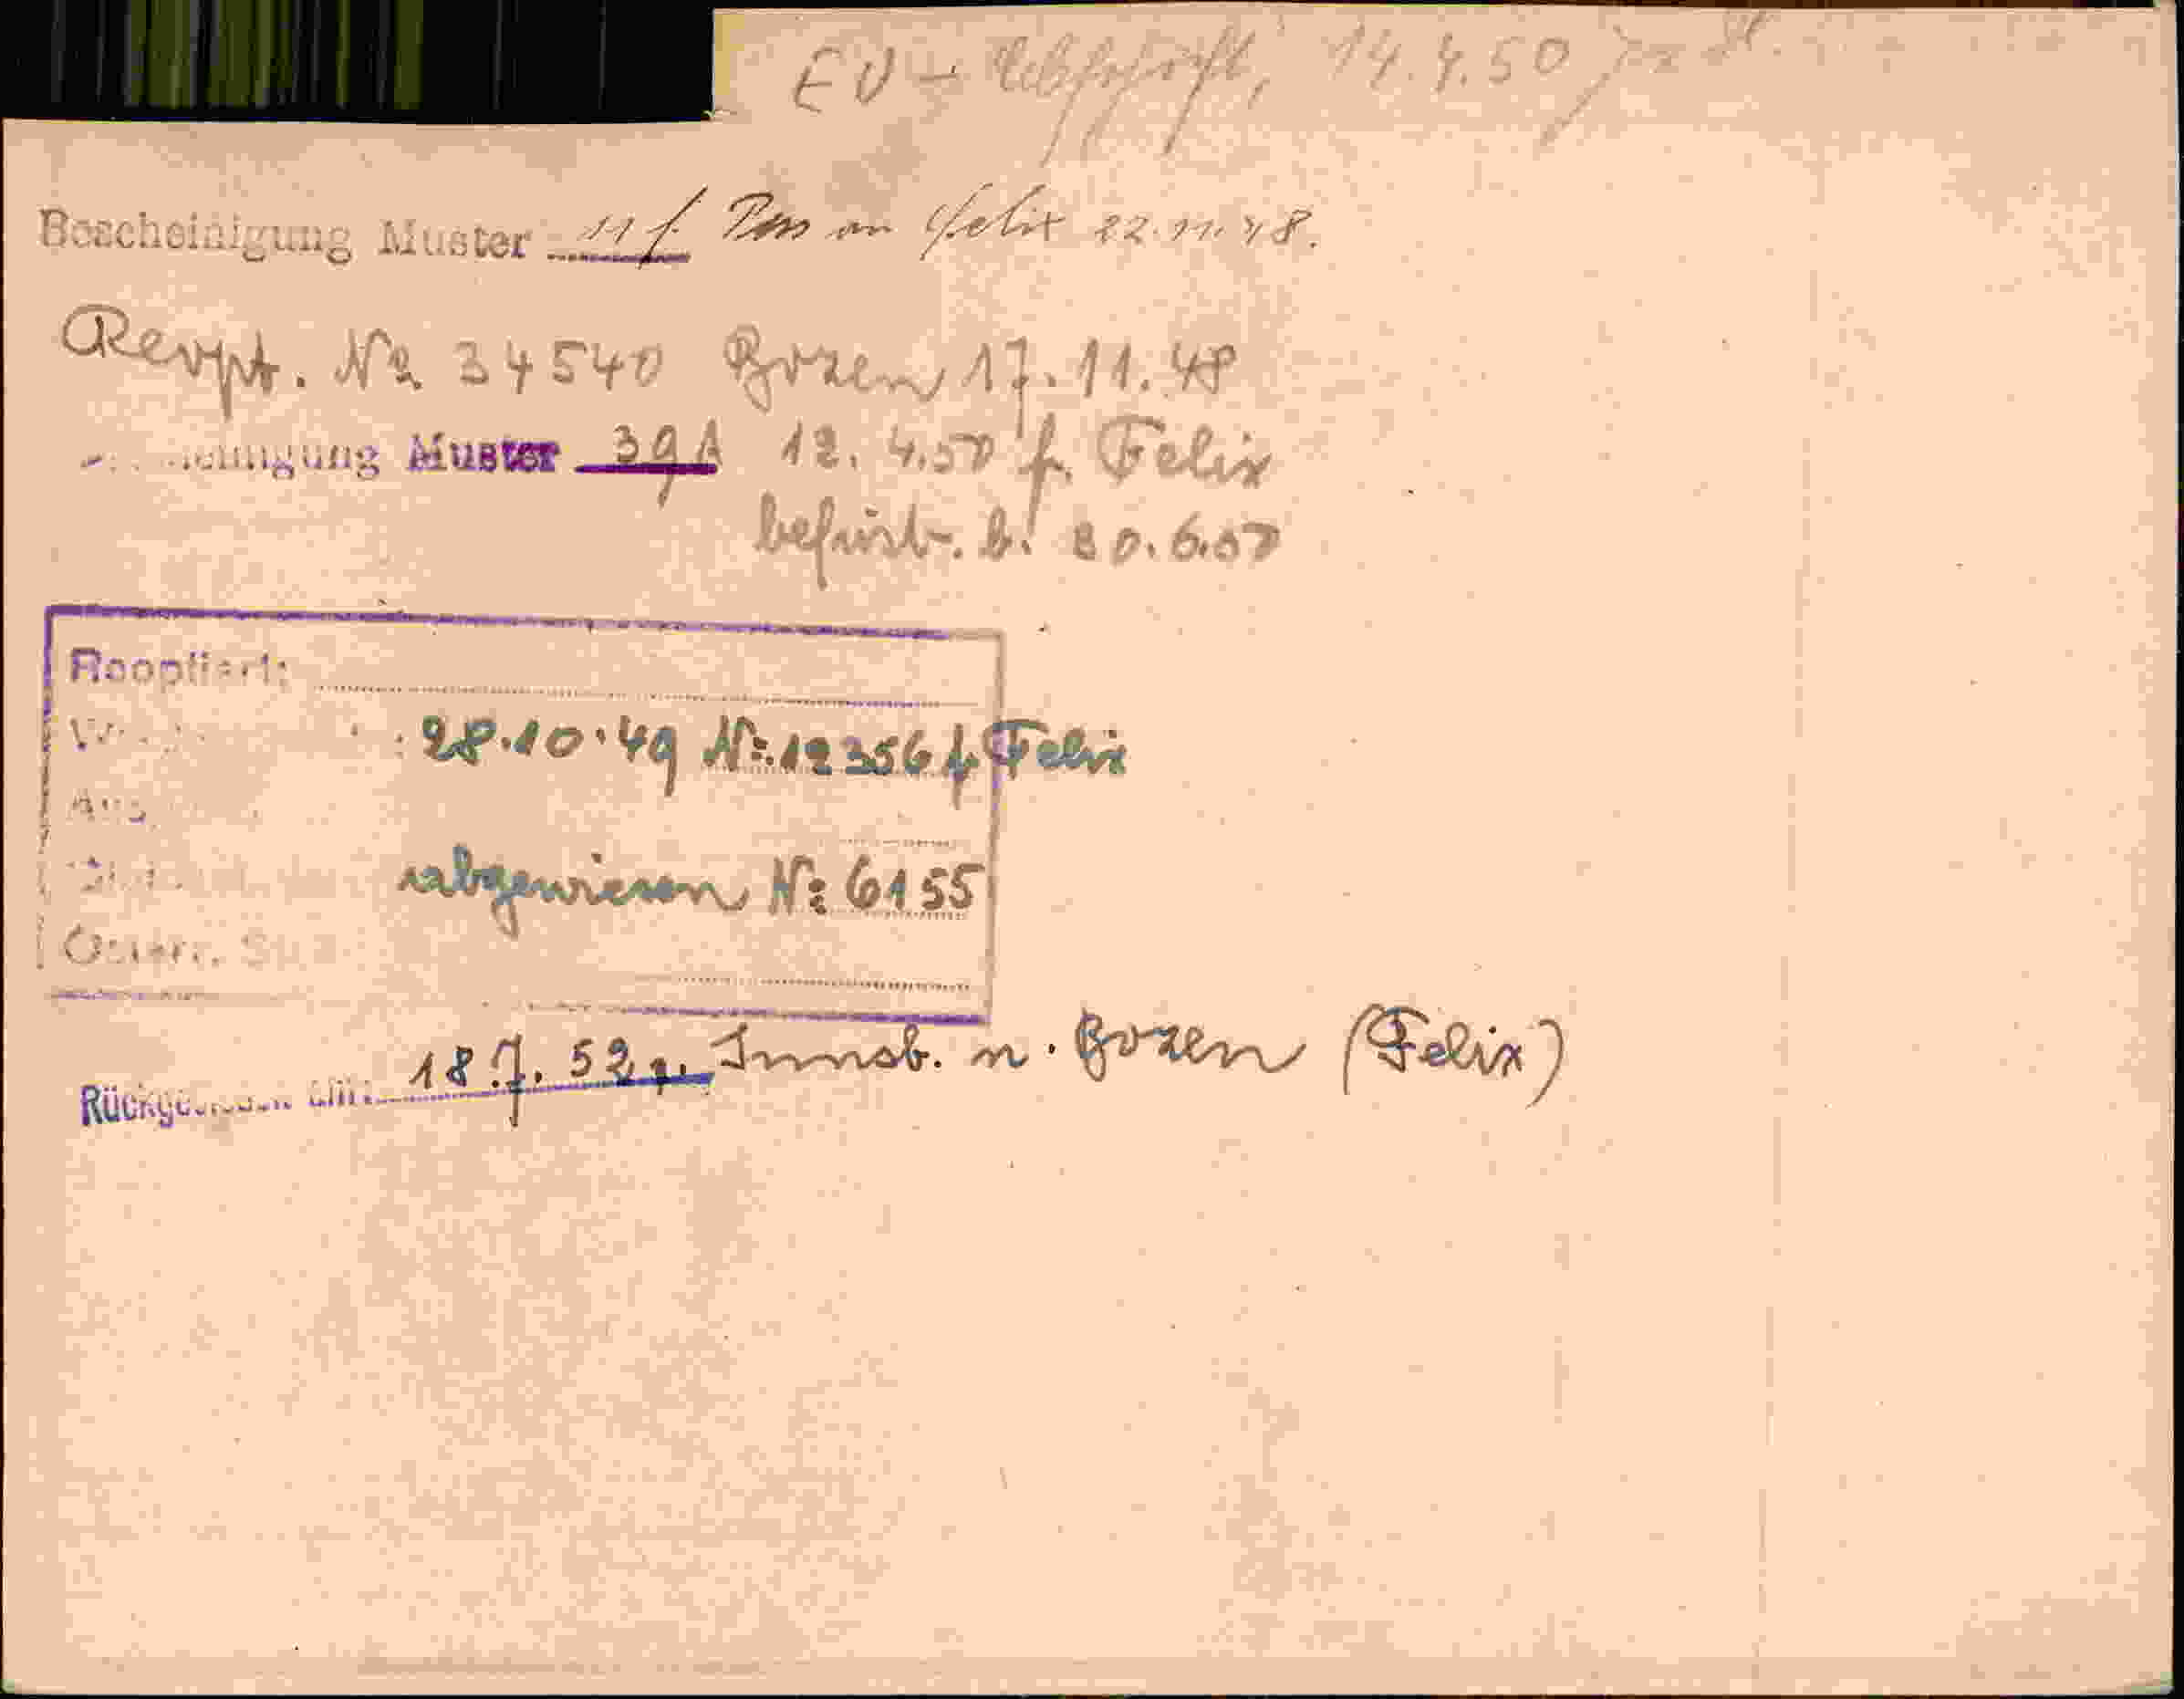 EV - Abschrift, 14.4.50
Bescheinigung Muster 11 f. Pass an Felix 22.11.48.
Revpt. No 34540 Bozen 17.11.48
Muster 39A 12.4.50 f. Felix
befürw. b. 30.6.50
Rooptiert:
28.10.49 No: 12356 f. Felix
abgewiesen No: 6155
Österr. St
18.7.52 v. Innsb. n. Bozen (Felix)